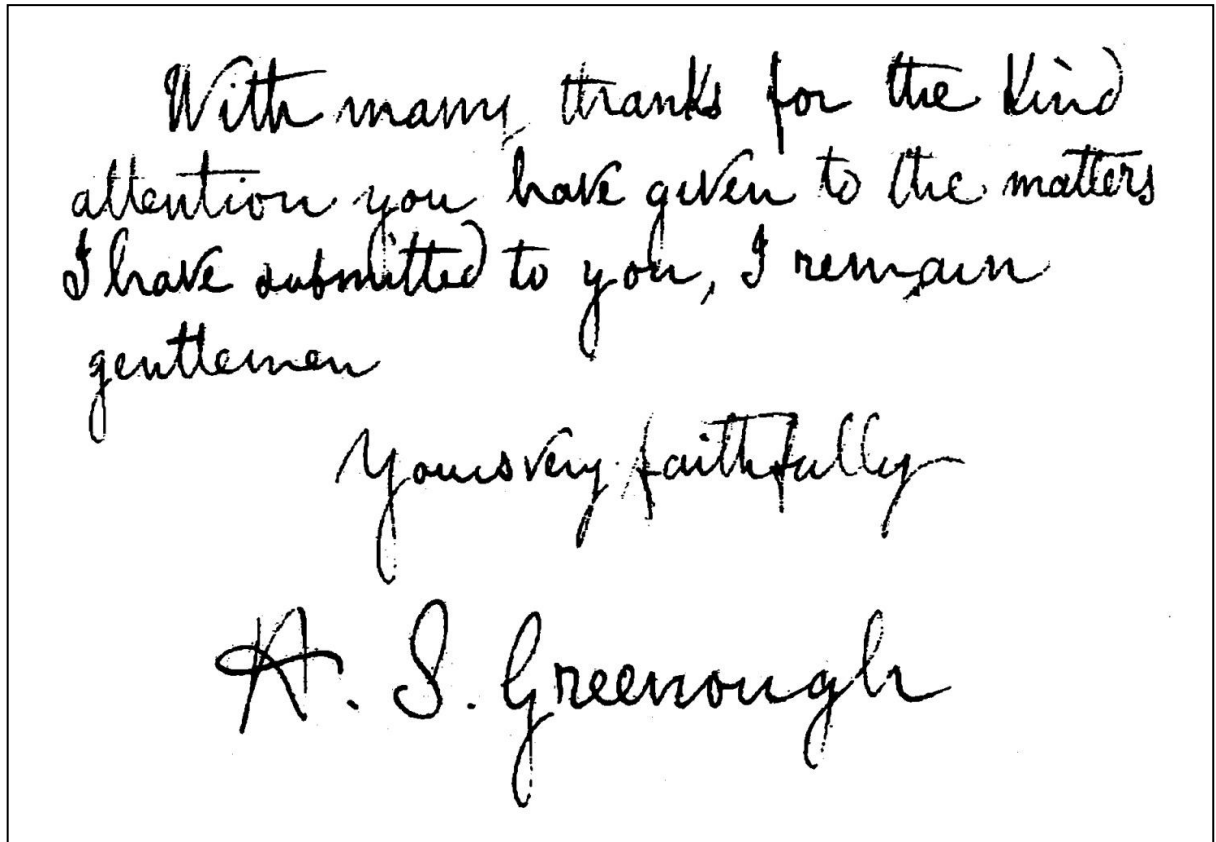 With many thanks for the kind
attention you have given to the matters
I have submitted to you, I remain
gentlemen
Yours very faithfully
H. S. Greenough